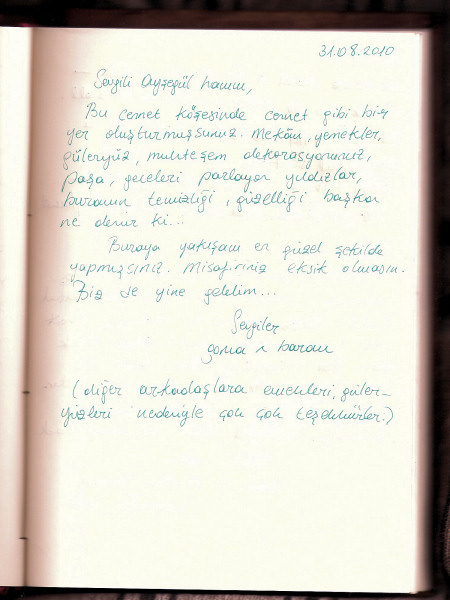 31.08.2010
Sevgili Ayşegül hanım,
Bu cennet köşesinde cennet gibi bir
yer oluşturmuşsunuz. Mekân, yemekler,
güleryüz, muhteşem dekorasyonunuz,
paşa, geceleri parlayan yıldızlar,
buranın temizliği, güzelliği başka
ne denir ki...
Buraya yakışanı en güzel şekilde
yapmışsınız. Misafiriniz eksik olmasın.
Biz de yine gelelim...
Sevgiler
baran
(diğer arkadaşlara emekleri, güler-
yüzleri nedeniyle çok çok teşekkürler.)